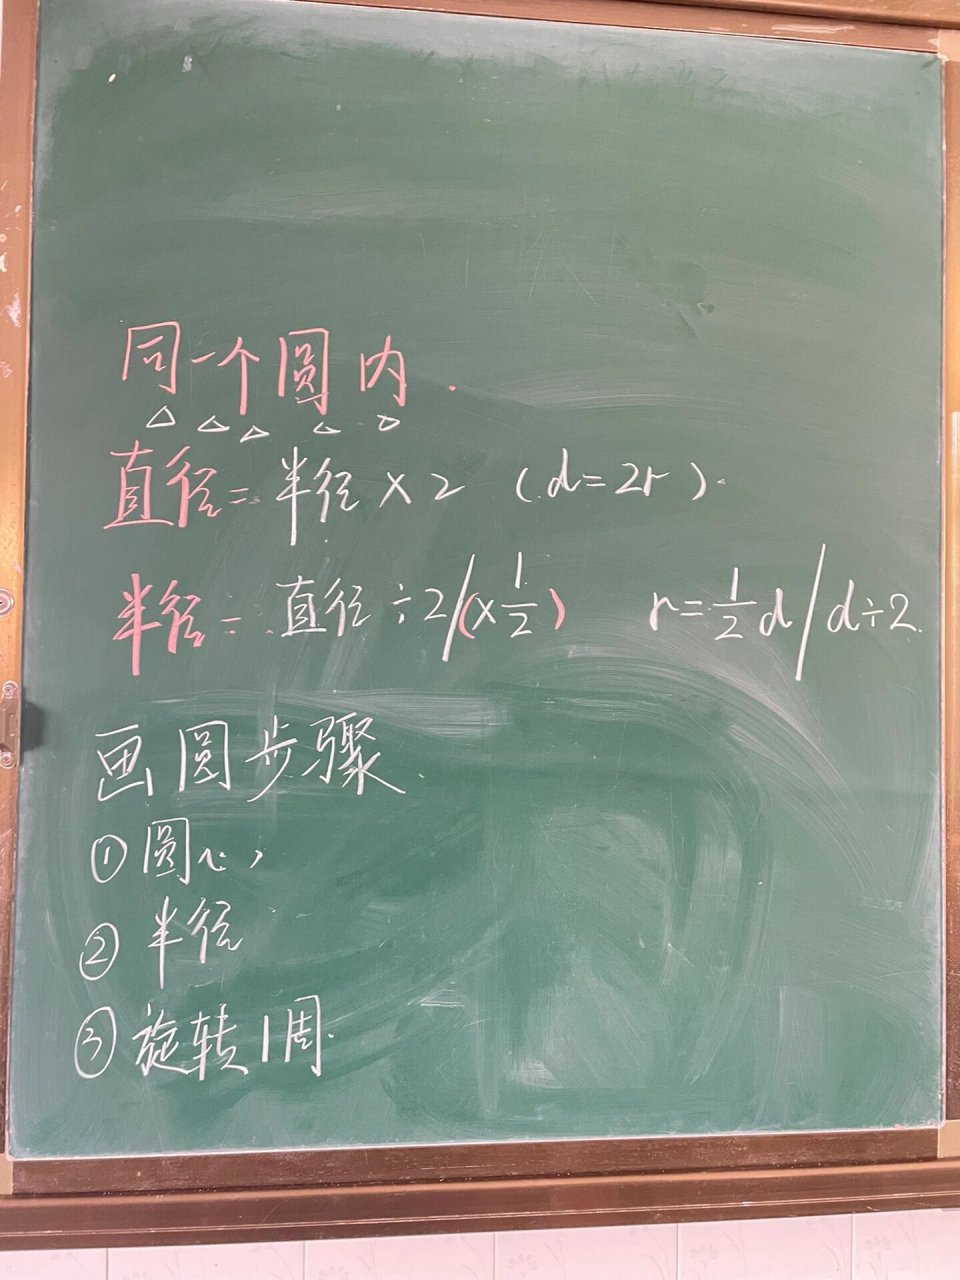 同一个圆内.
直径=半径×2 (d=2r).
半径=直径÷2/(×1/2) r=1/2d/d÷2.
画圆步骤.
①圆心
②半径
③旋转1周.